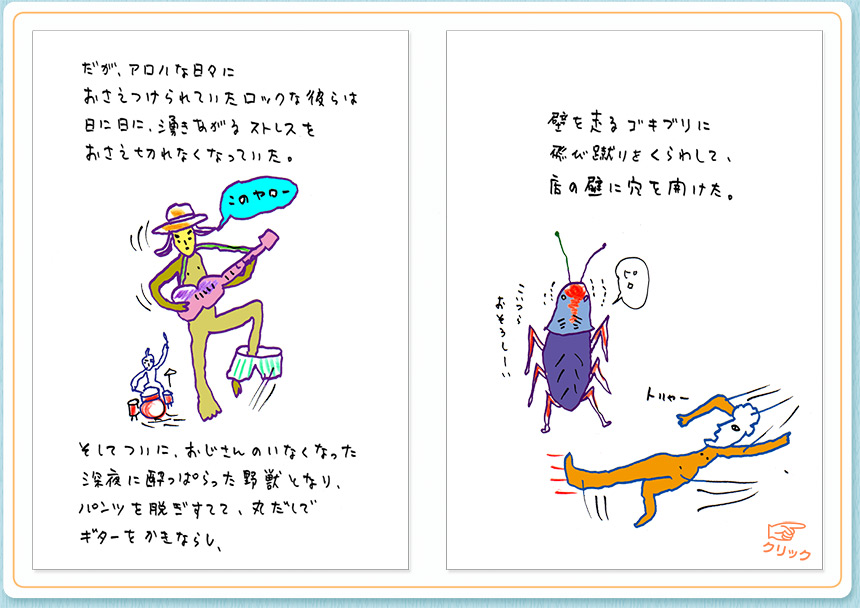 だが、アロハな日々に
おさえつけられていたロックな彼らは
日に日に、湧きあがるストレスを
おさえ切れなくなっていた。
このヤロー
そしてついに、おじさんのいなくなった
深夜に酔っぱらった野獣となり、
パンツを脱ぎすてて、丸だしで
ギターをかきならし、
壁を走るゴキブリに
飛び蹴りをくらわして、
店の壁に穴を開けた。
こいつら
おそろしーい
トリャー
クリック